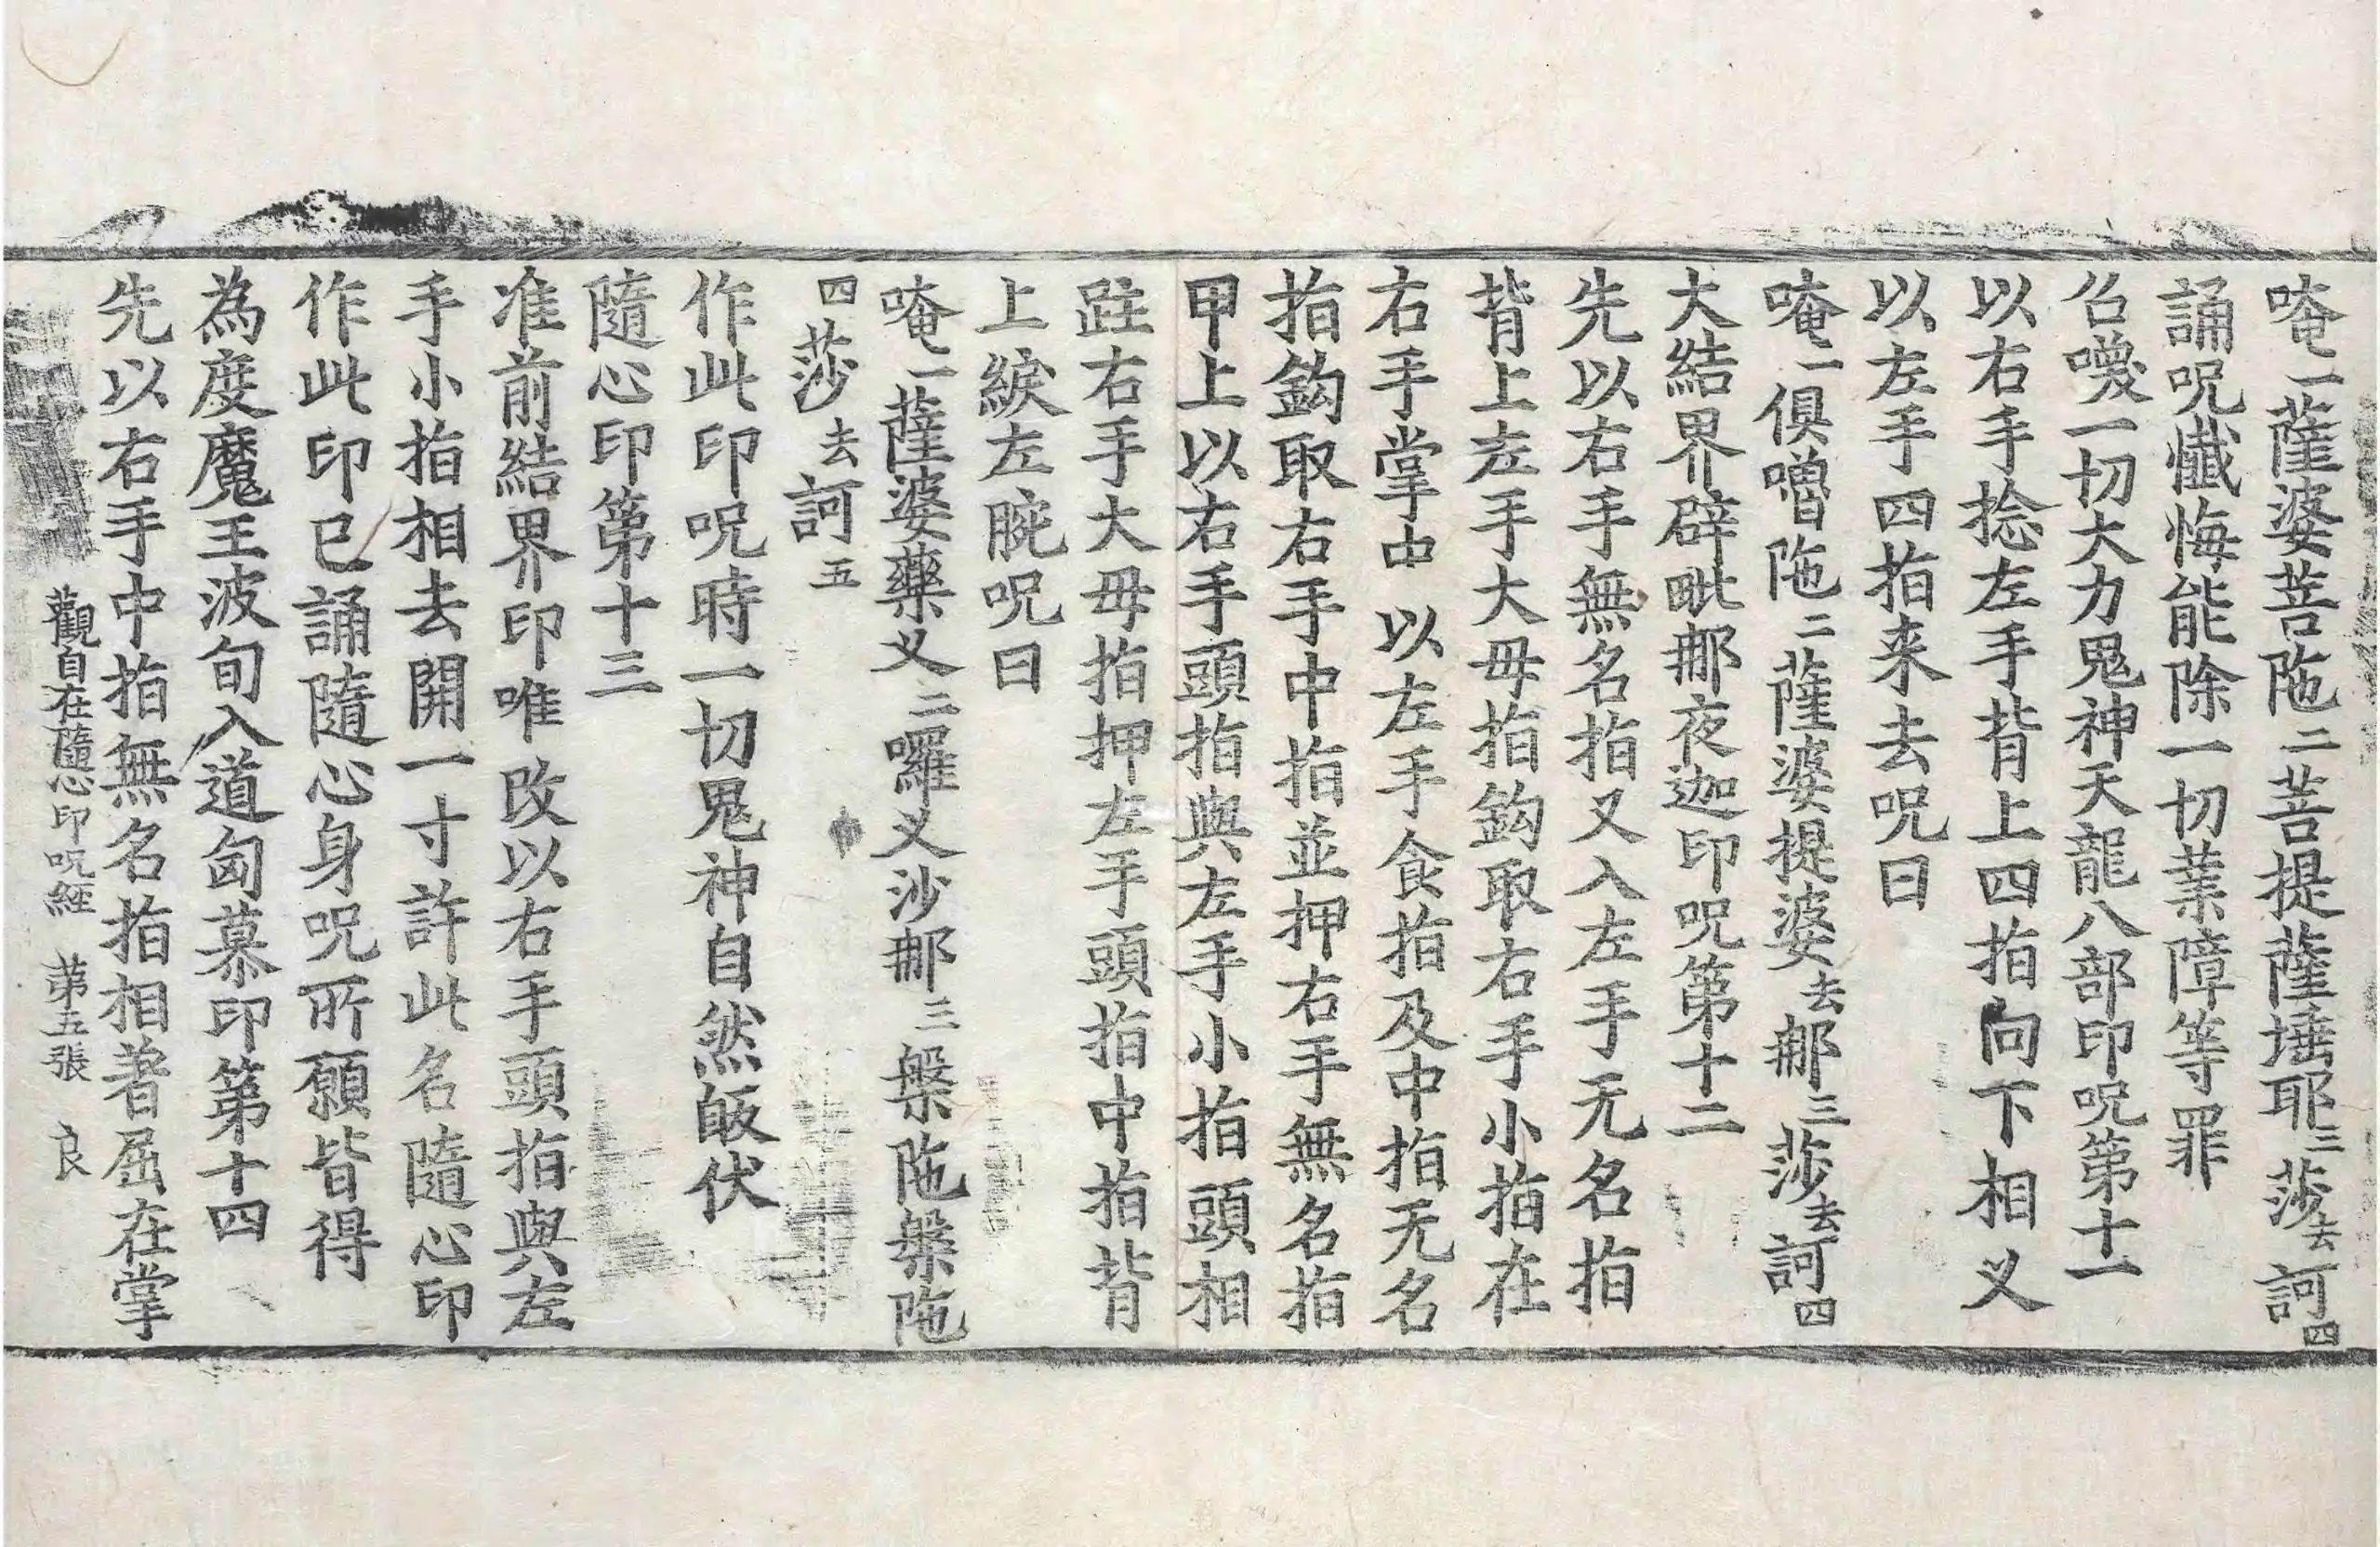 唵一薩婆菩陁二菩提薩埵耶三莎去訶四
誦呪懴悔能除一切業障等罪
召喚一切大力鬼神天龍八部印呪第十一
以右手捻左手背上四指向下相义
以左手四指来去呪曰
唵一俱嚕陁二薩婆提婆去郍三莎去訶四
大結界辟毗郍夜迦印呪第十二
先以右手無名指叉入左手无名指
背上左手大母指鈎取右手小指在
右手掌中以左手食指及中指无名
指鈎取右手中指並押右手無名指
甲上以右手頭指與左手小指頭相
跓右手大母指押左手頭指中指背
上緱左腕呪曰
唵一薩婆藥义二囉义沙郍三槃陁槃陁
四莎去訶五
作此印呪時一切鬼神自然皈伏
隨心印第十三
准前結界印唯改以右手頭指與左
手小指相去開一寸許此名隨心印
作此印已誦隨心身呪所願皆得
為度魔王波旬入道匈慕印第十四
先以右手中指無名指相著屈在掌
觀自在隨心印呪經　第五張　良